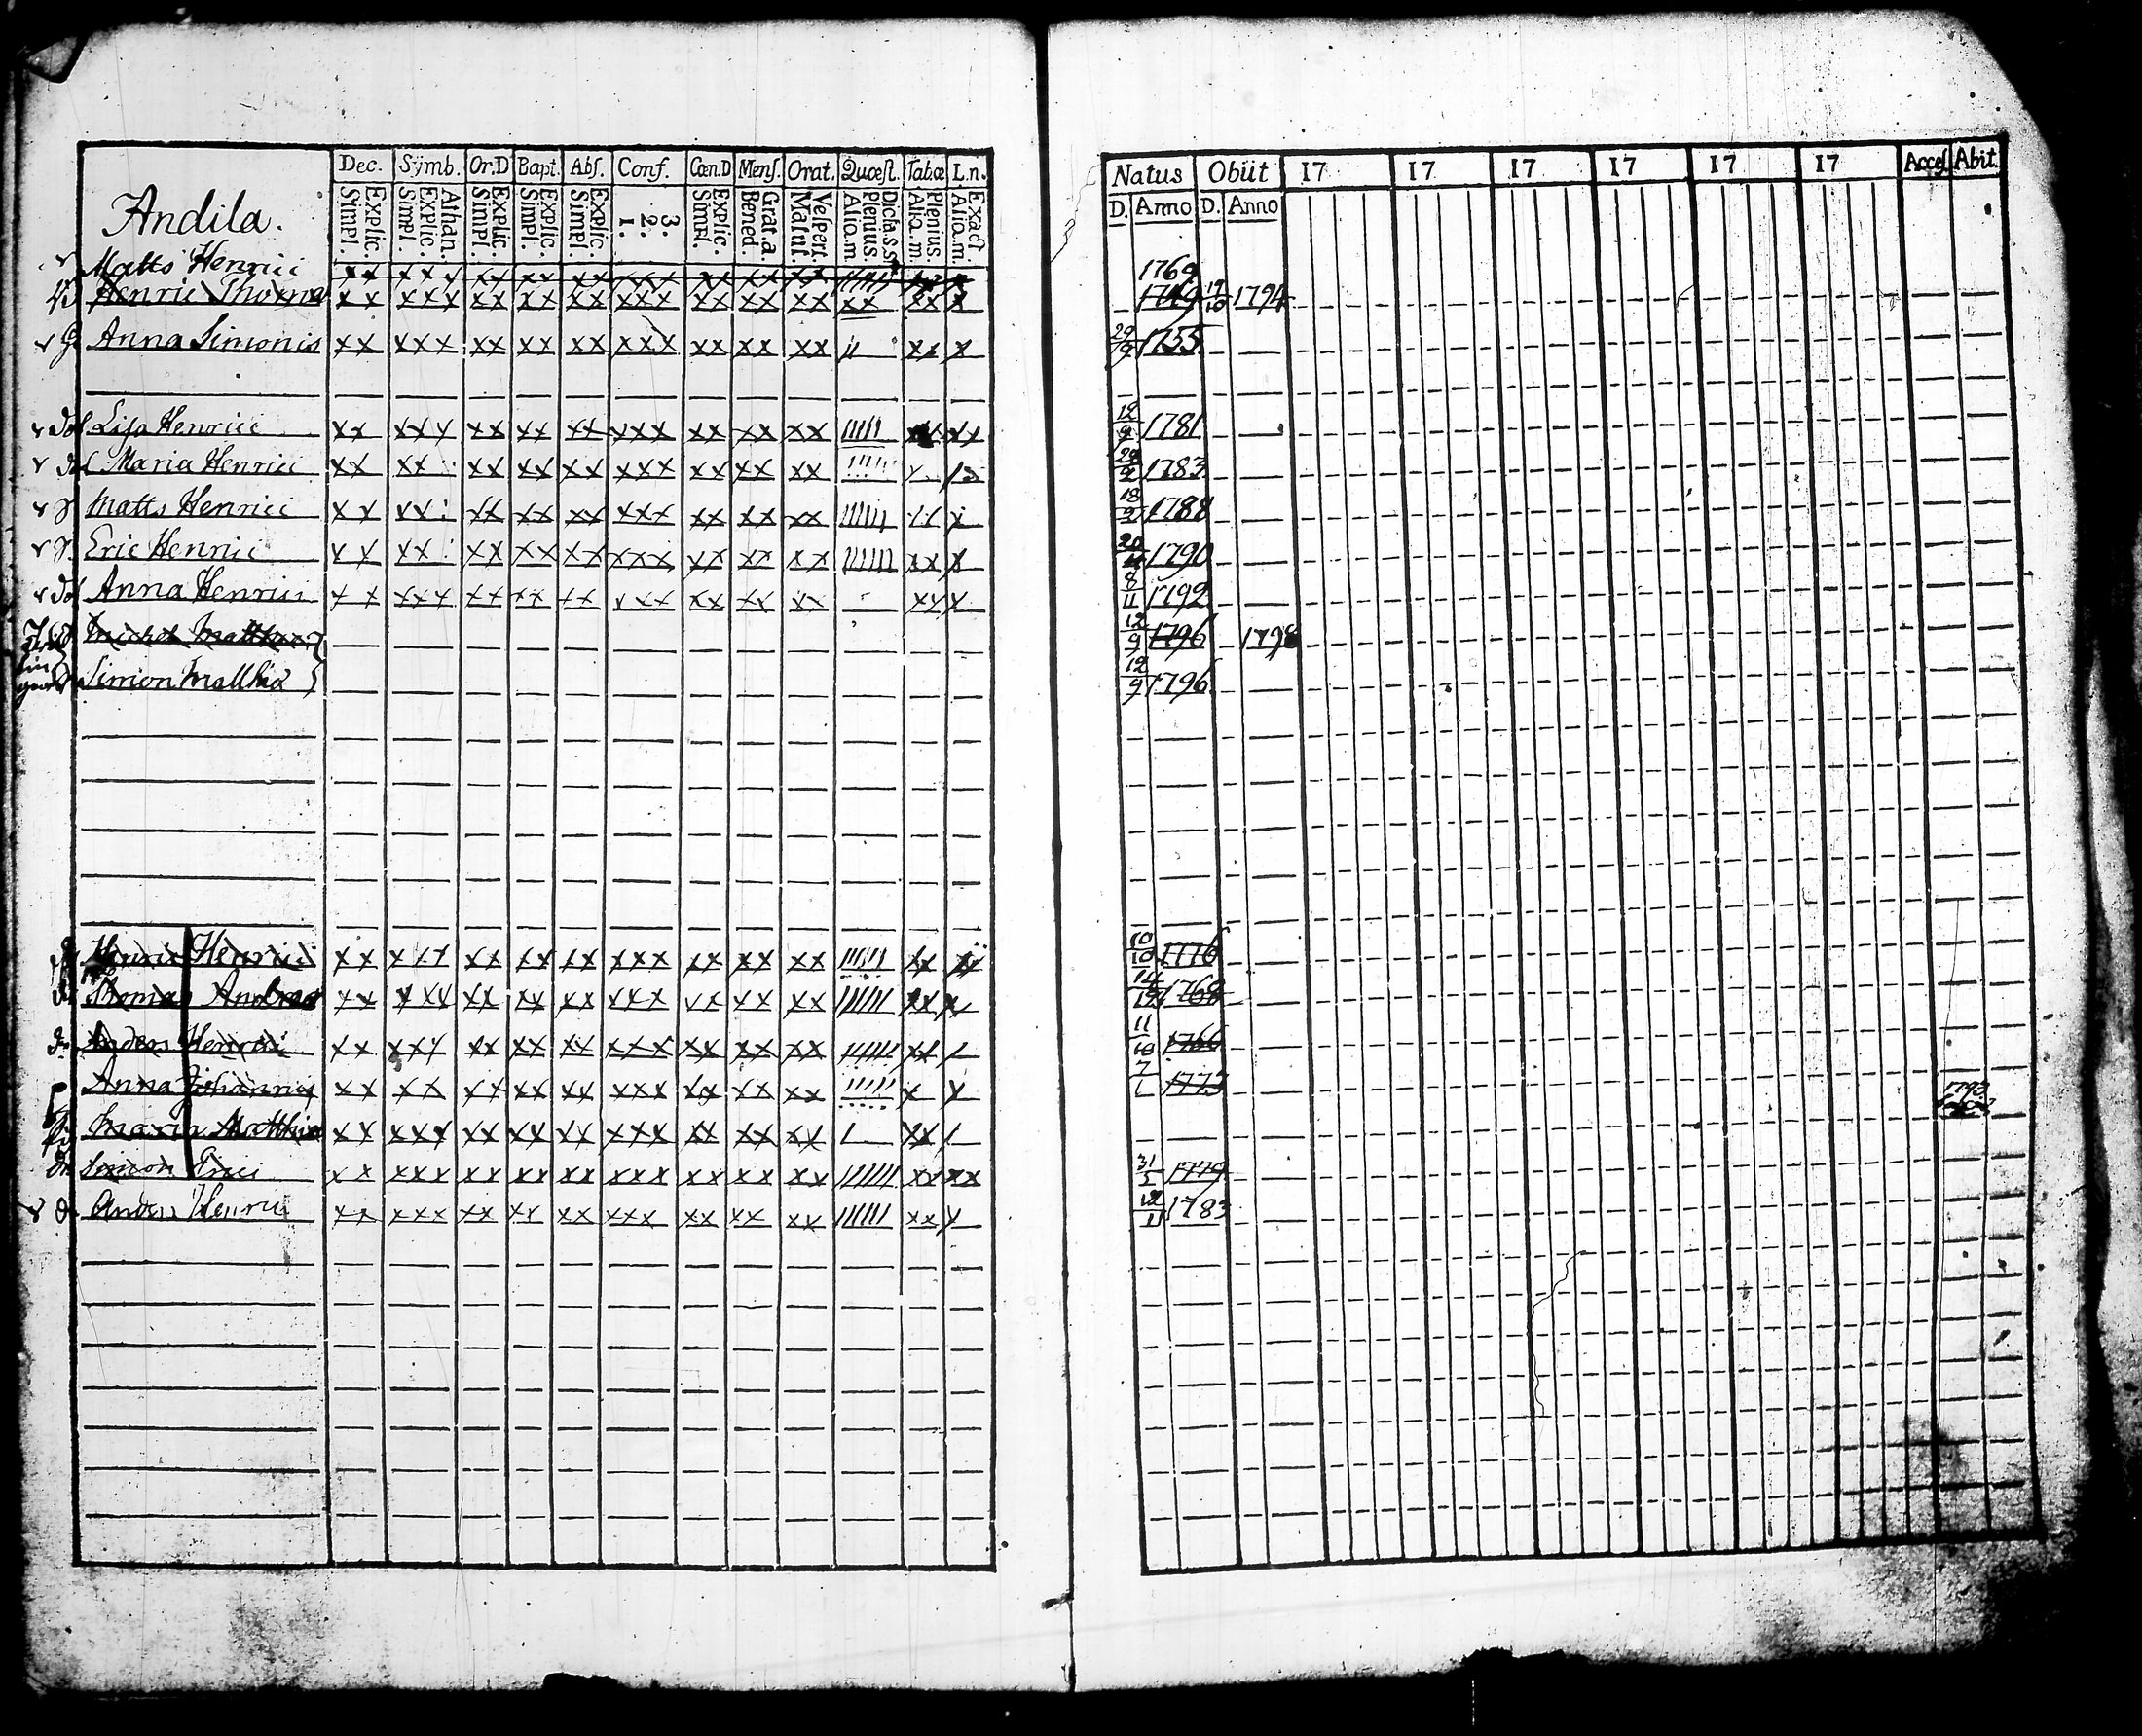 Dec. Symb. Or.D Bapt. Abs. Conf. Cœn.D Mens. Orat. Quæst. Tabæ L.n. Natus Obiit 17 17 17 17 17 17 Acces. Abit.
Explic. Simpl. Athan. Explic. Simpl. Explic. Simpl. Explic. Simpl. Explic. Simpl. 3. 2. 1. Explic. Simpl. Grat.a. Bened. Vespert. Matut. Dicta.s.s. Plenius Aliq.m Plenius. Aliq.m. Exact Aliq.m. D. Anno D. Anno
Andila.
Matts Henrici xx xxx 1769
Henric Thomæ xx xxx xx xx xx xxx xx xx xx xx xx x 1749 1794
Anna Simonis xx xxx xx xx xx xxx xx xx xx xx x 1755
Lisa Henrici xx xxx xx xx xx xxx xx xx xx 12 1781
Maria Henrici xx xx xx xx xx xxx xx xx xx 1783
Matts Henrici xx xx xx xx xx xxx xx xx xx 18 1788
Eric Henrici xx xx xx xx xx xxx xx xx xx xx x 20 1790
Anna Henrici xx xxx xx xx xx xxx xx xx xx xx x 8/11 1792
Michel Matthiæ 12/9 1796 1798
Simon Matthiæ 12/9 1796
Henric Henrici xx xxx xx xx xx xxx xx xx xx xx 10/10 1776
Thomas Andreæ xx xxx xx xx xx xxx xx xx xx xx x 1768
Anders Henrici xx xxx xx xx xx xxx xx xx xx xx 11/10 1766
Anna Johannis xx xx xx xx xx xxx xx xx x x 1773
1793
Maria Matthiæ xx xxx xx xx xx xxx xx xx xx xx
Simon Erici xx xxx xx xx xx xxx xx xx xx xx xx 1779
Anders Henrici xx xxx xx xx xx xxx xx xx xx xx x 1783